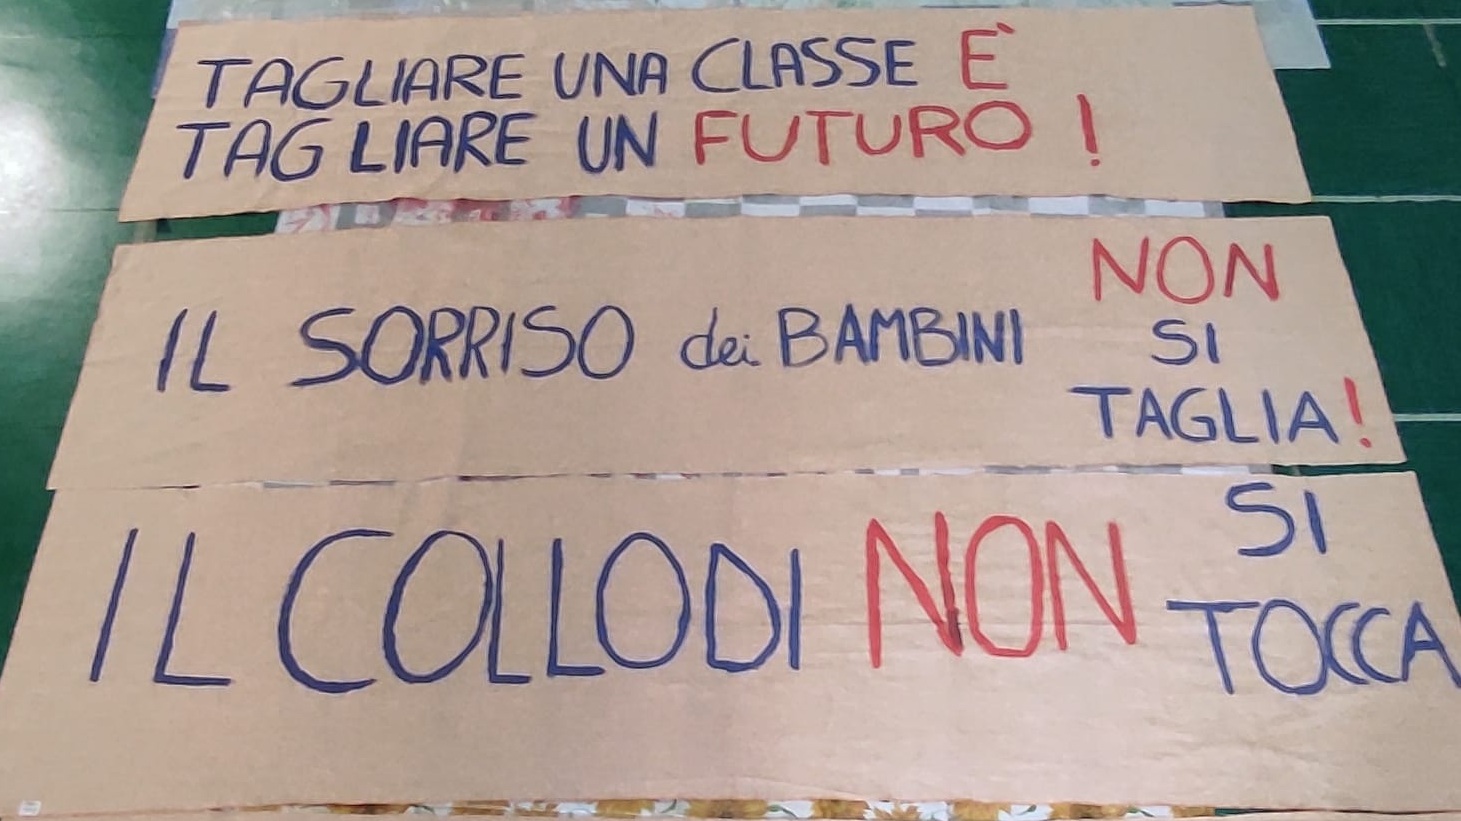 TAGLIARE UNA CLASSE È
TAGLIARE UN FUTURO !
IL SORRISO dei BAMBINI NON
SI
TAGLIA!
IL COLLODI NON SI
TOCCA